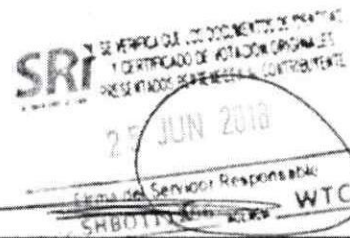 SRI SE VERIFICA QUE LOS DOCUMENTOS DE IDENTIDAD
Y CERTIFICADO DE VOTACION ORIGINALES
PRESENTADOS PERTENECEN AL CONTRIBUYENTE
25 JUN 2018
Firma del Servidor Responsable
AGENCIA WTC